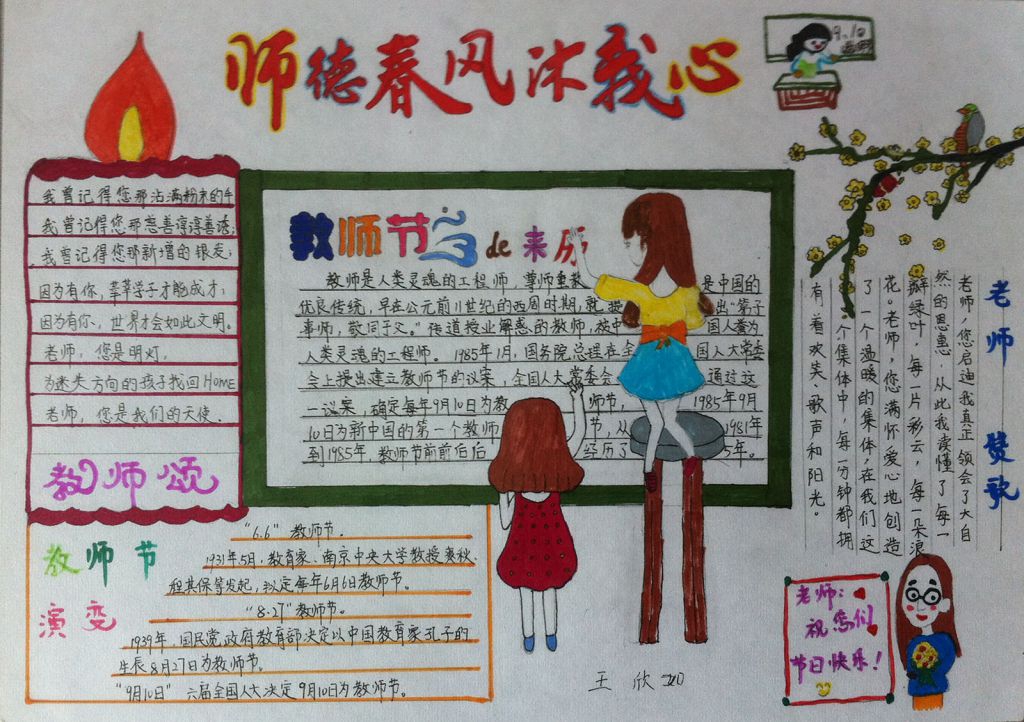 师德春风沐我心
9.10
我曾记得您那沾满粉末的手
我曾记得您那慈善谆谆善诱;
我曾记得您那新增的银发;
因为有你,莘莘学子才能成才;
因为有你、世界才会如此文明。
老师,您是明灯,
为迷失方向的孩子找回HOME
老师,您是我们的天使.
教师颂
教师节
de 来历
教师是人类灵魂的工程师,尊师重教 是中国的
优良传统,早在公元前11世纪的西周时期,就提 出“弟子
事师,敬同于父。”传道授业解惑的教师,被中 国人喜为
人类灵魂的工程师。1985年1月,国务院总理在全 国人大常委
会上提出建立教师节的议案,全国人大常委会 通过这
一议案,确定每年9月10日为教 师节, 1985年9月
10日为新中国的第一个教师 节,从 1981年
到1985年,教师节前前后后 经历了 5年。
老师 赞歌
老师,您启迪我真正领会了大自
然的恩惠,从此我读懂了每一
瓣绿叶,每一片彩云,每一朵浪
花。老师,您满怀爱心地创造
了一个温暖的集体,在我们这
个集体中,每一分钟都拥
有着欢笑、歌声和阳光。
教师节
演变
“6.6”教师节。
1931年5月,教育家、南京中央大学教授襄秋、
程其保等发起,拟定每年6月6日教师节。
“8.27”教师节。
1939年,国民党政府教育部决定以中国教育家孔子的
生辰8月27日为教师节。
“9月10日”六届全国人大决定9月10日为教师节。
王欣
老师:
祝您们
节日快乐!